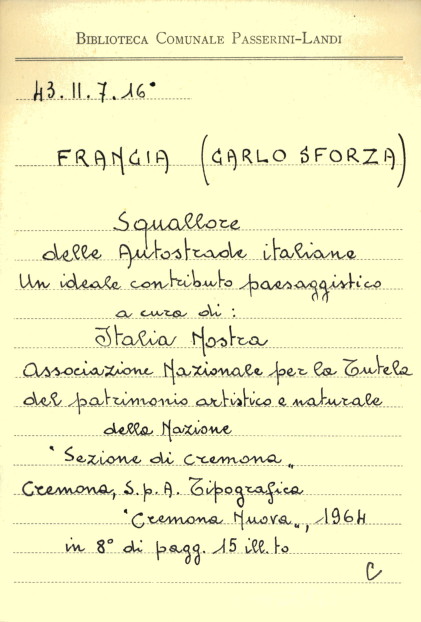 BIBLIOTECA COMUNALE PASSERINI-LANDI
43.II.7.16°
FRANCIA (CARLO SFORZA)
Squallore
delle Autostrade italiane
Un ideale contributo paesaggistico
a cura di:
Italia Nostra
Associazione Nazionale per la Tutela
del patrimonio artistico e naturale
della Nazione
"Sezione di Cremona"
Cremona, S.p.A. Tipografica
"Cremona Nuova", 1964
in 8° di pagg. 15 ill.to
C